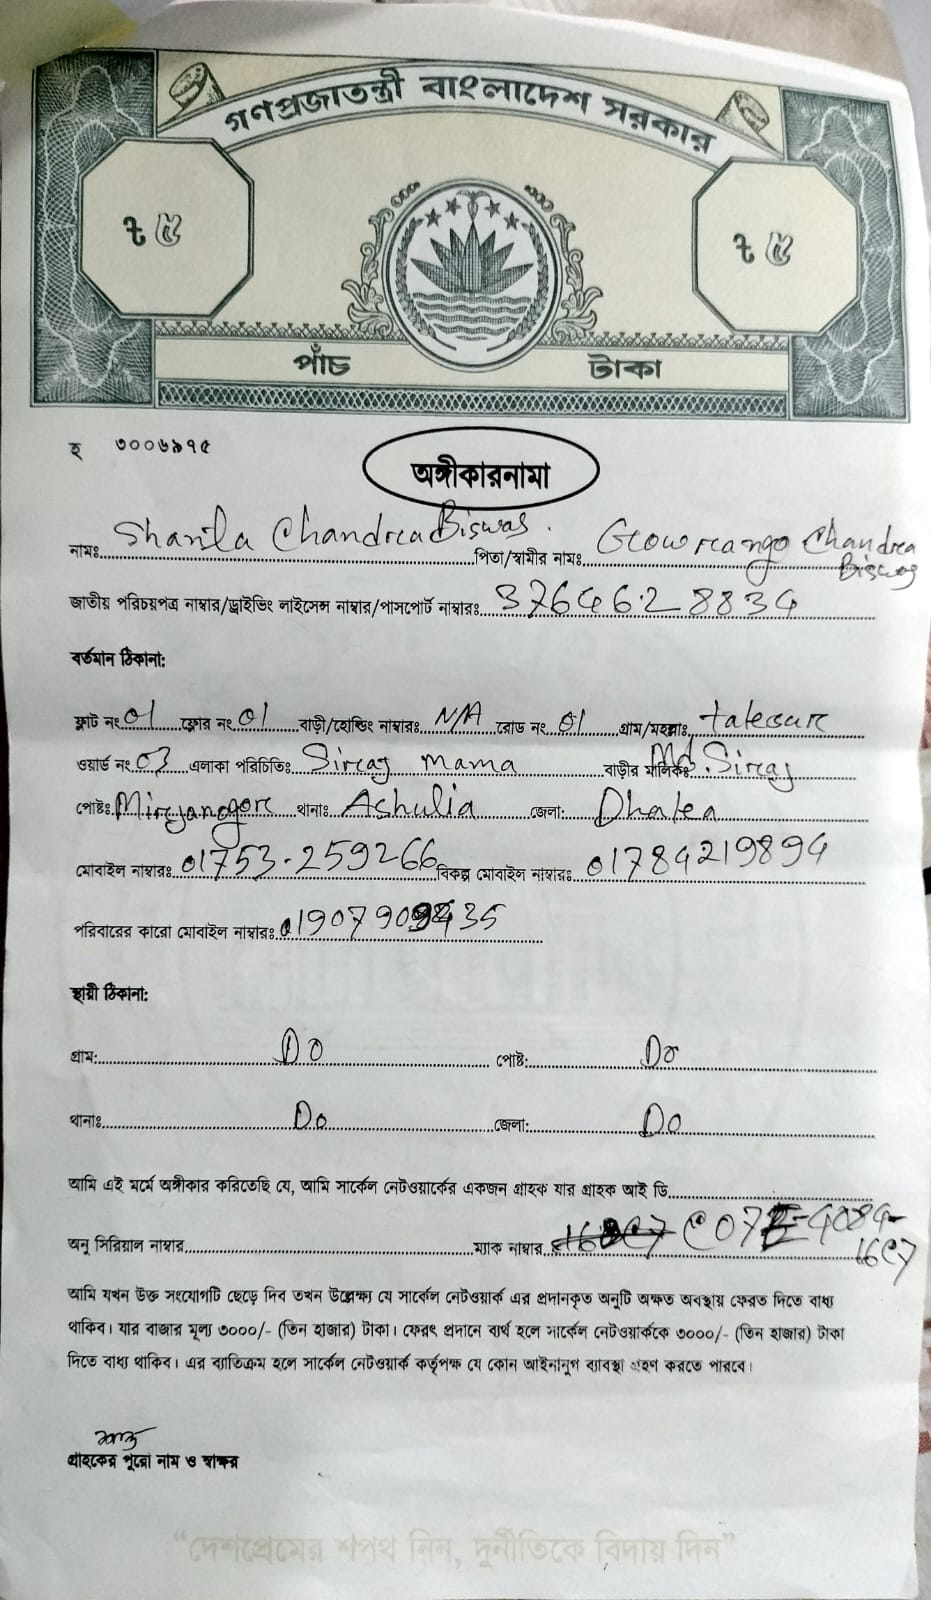 গণপ্রজাতন্ত্রী বাংলাদেশ সরকার
৳ ৫ ৳ ৫
পাঁচ টাকা
হ ৩০০৬৯৭৫
অঙ্গীকারনামা
নামঃ Shanta Chandra Biswas. পিতা/স্বামীর নামঃ Gowrango Chandra Biswas
জাতীয় পরিচয়পত্র নাম্বার/ড্রাইভিং লাইসেন্স নাম্বার/পাসপোর্ট নাম্বারঃ
বর্তমান ঠিকানা:
ফ্লাট নং 01 ফ্লোর নং 01 বাড়ী/হোল্ডিং নাম্বারঃ N/A রোড নং 01 গ্রাম/মহল্লাঃ
ওয়ার্ড নং 03 এলাকা পরিচিতিঃ Siraj mama বাড়ীর মালিকঃ Md. Siraj
পোষ্টঃ থানাঃ Ashulia জেলা: Dhaka
মোবাইল নাম্বারঃ 01753-259266 বিকল্প মোবাইল নাম্বারঃ 01784219894
পরিবারের কারো মোবাইল নাম্বারঃ
স্থায়ী ঠিকানা:
গ্রাম: Do পোষ্ট: Do
থানাঃ Do জেলা: Do
আমি এই মর্মে অঙ্গীকার করিতেছি যে, আমি সার্কেল নেটওয়ার্কের একজন গ্রাহক যার গ্রাহক আই ডি
অনু সিরিয়াল নাম্বার ম্যাক নাম্বার
আমি যখন উক্ত সংযোগটি ছেড়ে দিব তখন উল্লেক্ষ্য যে সার্কেল নেটওয়ার্ক এর প্রদানকৃত অনুটি অক্ষত অবস্থায় ফেরত দিতে বাধ্য
থাকিব। যার বাজার মূল্য ৩০০০/- (তিন হাজার) টাকা। ফেরৎ প্রদানে ব্যর্থ হলে সার্কেল নেটওয়ার্ককে ৩০০০/- (তিন হাজার) টাকা
দিতে বাধ্য থাকিব। এর ব্যাতিক্রম হলে সার্কেল নেটওয়ার্ক কর্তৃপক্ষ যে কোন আইনানুগ ব্যাবস্থা গ্রহণ করতে পারবে।
গ্রাহকের পুরো নাম ও স্বাক্ষর
“দেশপ্রেমের শপথ নিন, দুর্নীতিকে বিদায় দিন”